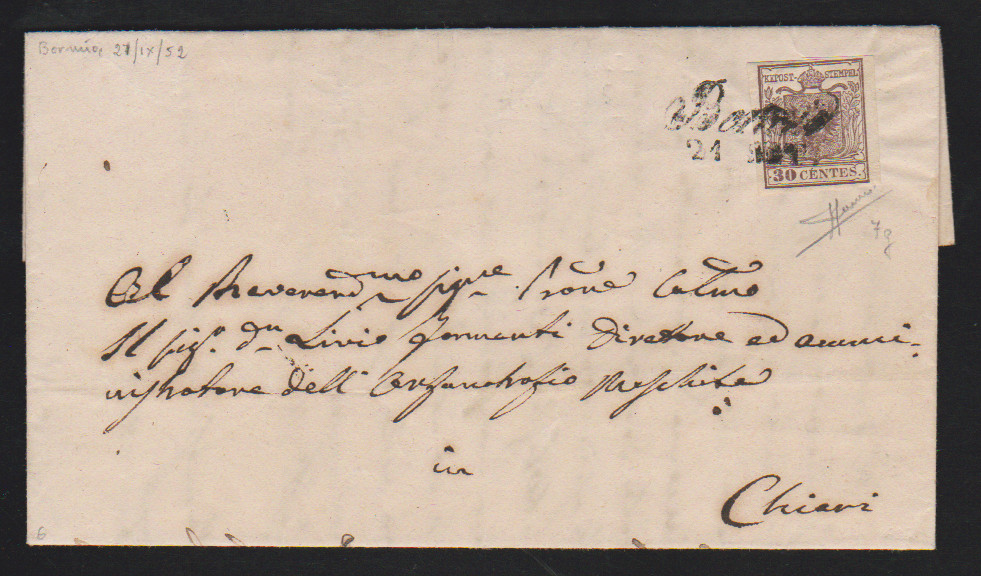 Bormio, 21/IX/52
KPOST-STEMPEL
Bormio
21 SET.
30 CENTES.
7g
Al Reverendmo sigre Prone Colmo
Il sigr dn Livio Formenti Direttore ed ammi-
nistratore dell' Orfanotrofio Maschile
in
Chiari
6